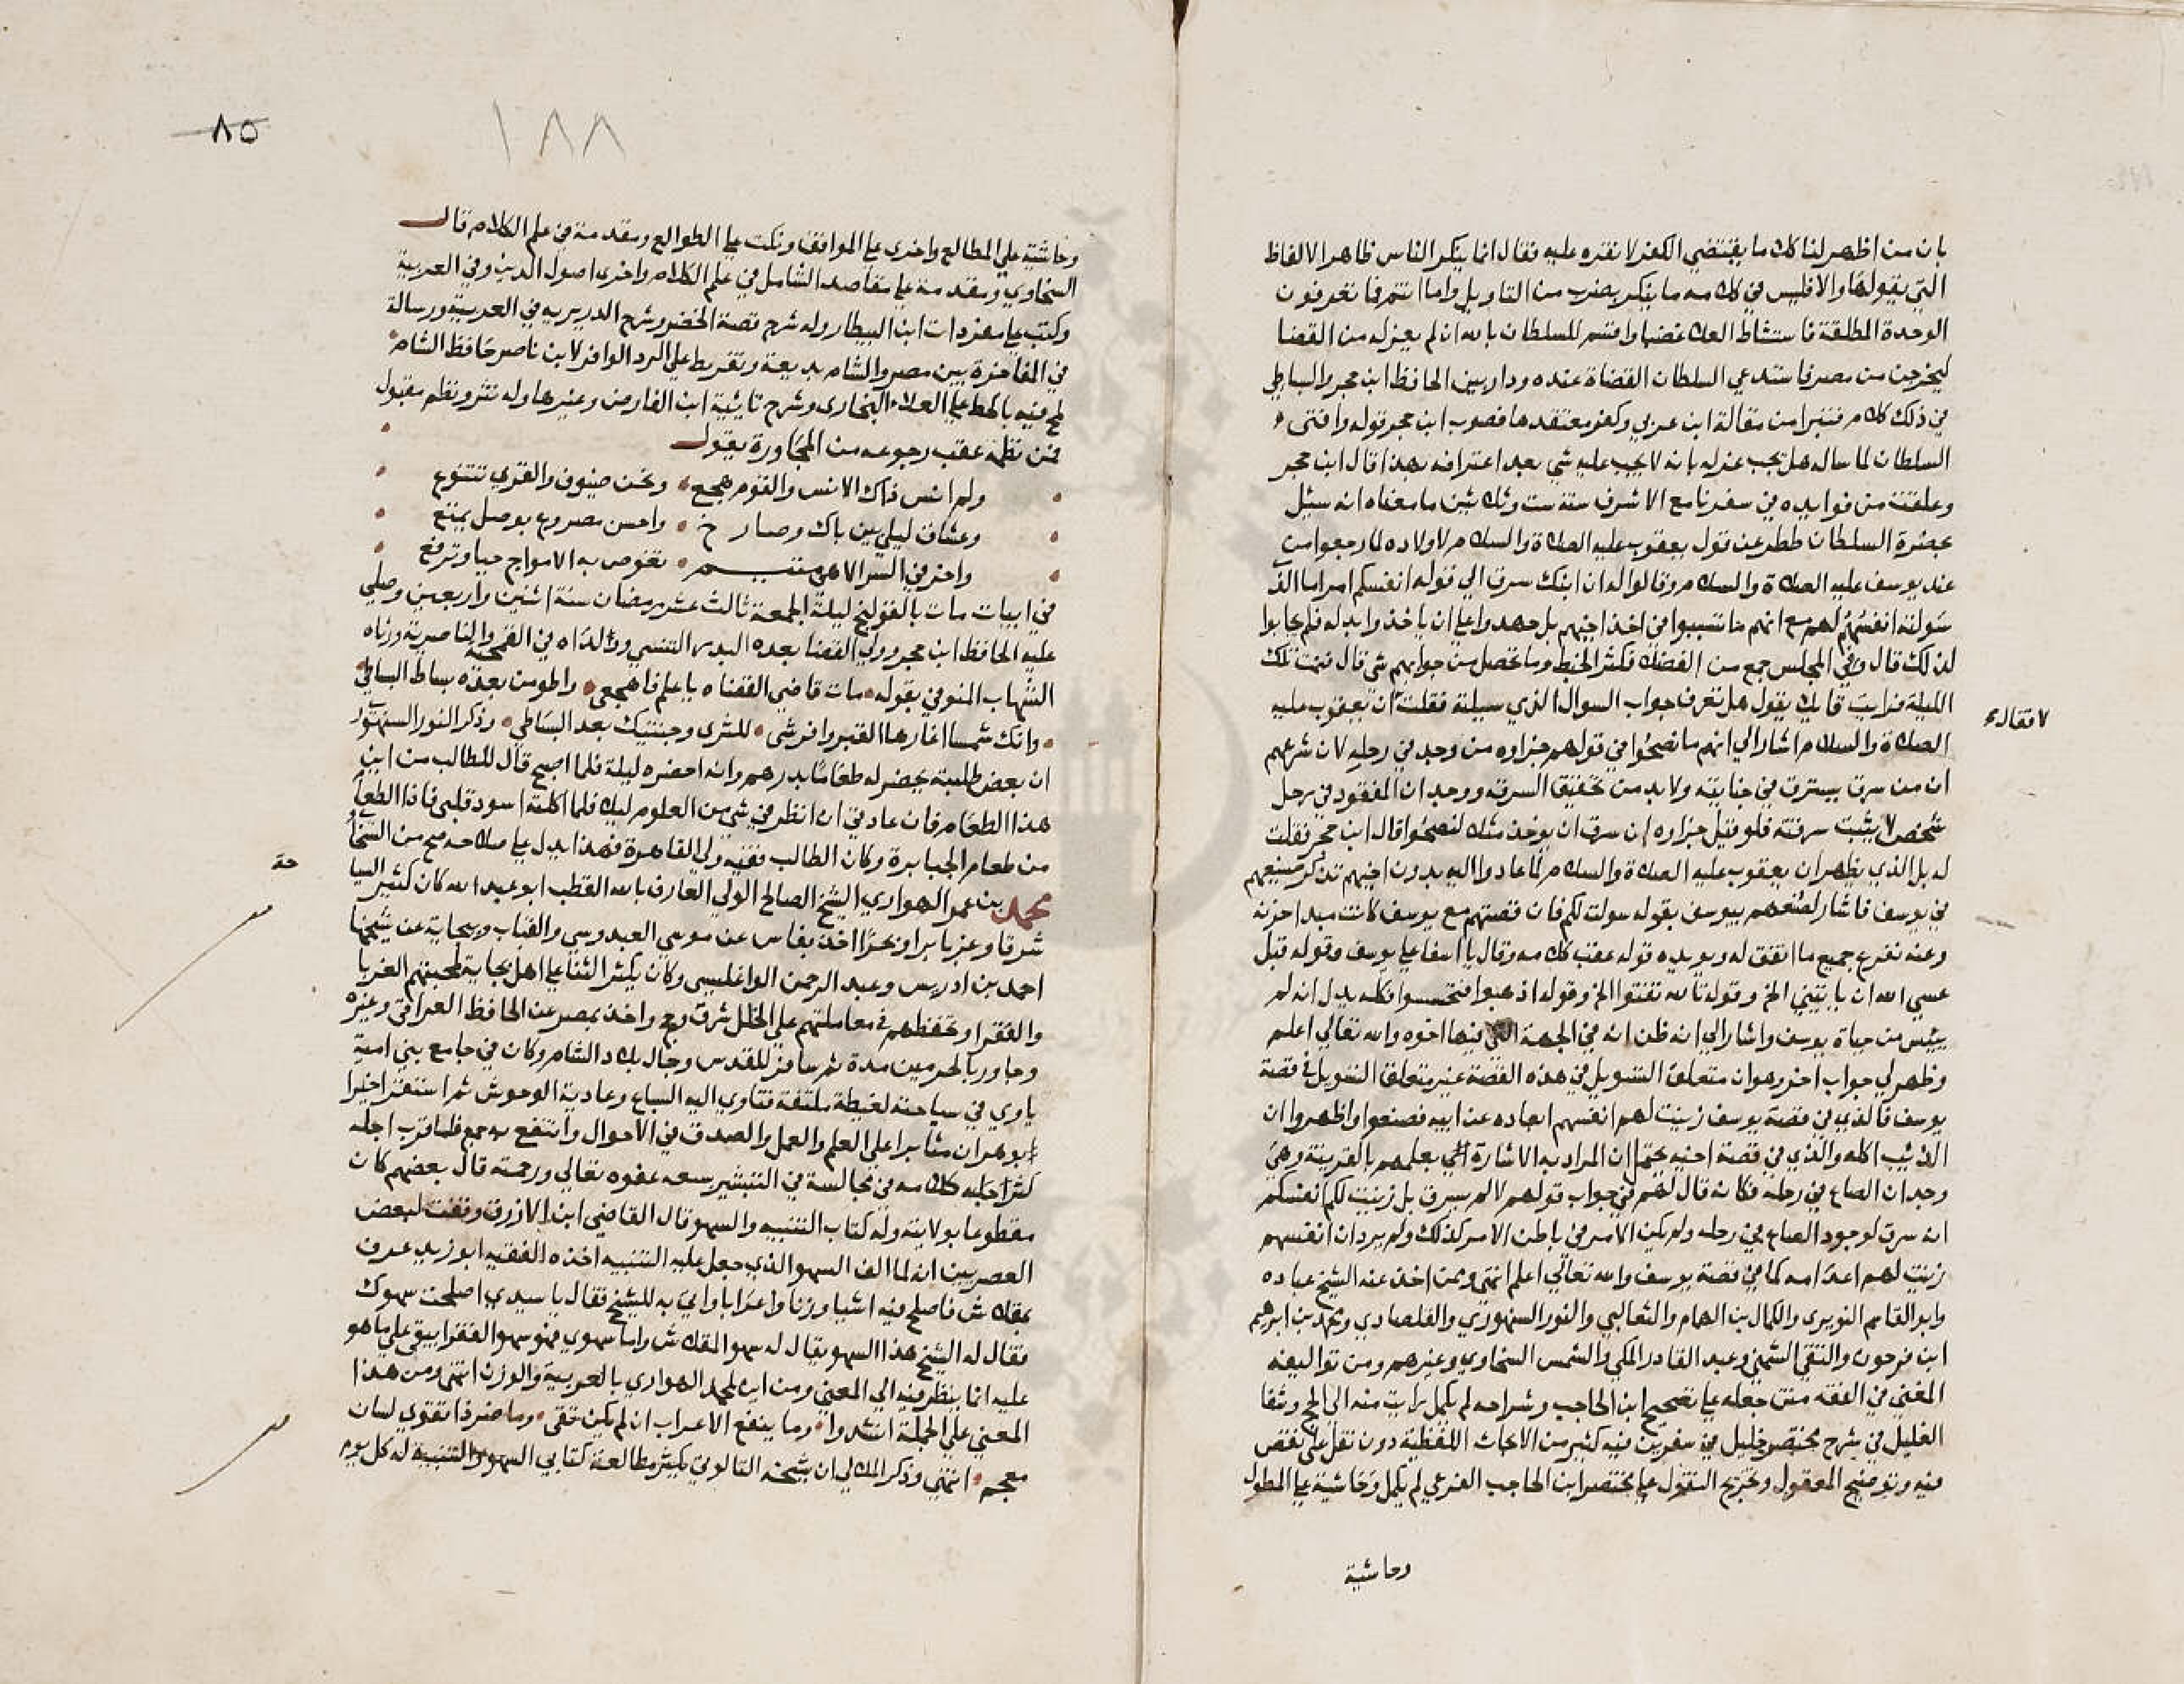 بان من اظهر لنا كلاما يقتضي الكفر لا نقره عليه فقال انما ينكر الناس ظاهر الالفاظ
التي يقولها والا فليس في كلامه ما ينكر بضرب من التاويل واما انتم فما تعرفون
الوحدة المطلقة فاستشاط العلا غضبا واقسم للسلطان بالله ان لم يعزله من القضا
ليخرجن من مصر فاستدعي السلطان القضاة عنده ودار بين الحافظ ابن حجر والبساطي
في ذلك كلام فتبرا من مقالة ابن عربي وكفر معتقدها فصوب ابن حجر قوله وافتى
السلطان لما ساله هل يجب عزله بانه لا يجب عليه شي بعد اعترافه بهذا قال ابن حجر
وعلقت من فوايده في سفرنا مع الاشرف سنة ست وثلاثين ما معناه انه سئل
بحضرة السلطان ططر عن قول يعقوب عليه الصلاة والسلام لاولاده لما رجعوا من
عند يوسف عليه الصلاة والسلام وقالوا له ان ابنك سرق الي قوله انفسكم امرا ما الذ
سولته انفسهم لهم مع انهم ما تسببوا في اخذ اخيهم بل جهدوا علي ان ياخذوا بدله فلم يجابوا
لذلك قال وفي المجلس جمع من الفضلا فكثر الخبط وما تحصل من جوابهم شي قال فنمت تلك
الليلة فرايت قايلا يقول هل تعرف جواب السوال الذي سيلته فقلت ان يعقوب عليه
لا فقال
الصلاة والسلام اشار الي انهم ما نصحوا في قولهم جزاوه من وجد في رحله لان شرعهم
ان من سرق يسترق في جنايته ولا بد من تحقيق السرقة ووجدان المفقود في رحل
شخص لا يثبت سرقته فلو قيل جزاوه ان سرق ان يوخذ مثلا لنصحوا قال ابن حجر فقلت
له بل الذي يظهر ان يعقوب عليه الصلاة والسلام لما عادوا اليه بدون اخيهم تذكر صنيعهم
في يوسف فاشار لصنعهم بيوسف بقوله سولت لكم فان قصتهم مع يوسف كانت مبدا حزنه
وعنه تفرع جميع ما اتفق له ويويده قوله عقب كلامه وقال يا اسفا علي يوسف وقوله قبل
عسي الله ان ياتيني الخ وقوله تالله تفتوا الخ وقوله اذهبوا فتحسسوا فكله يدل انه لم
يئيس من حياة يوسف واشار الي انه ظن انه في الجهة التي فيها اخوه والله تعالي اعلم
وظهر لي جواب اخر وهو ان متعلق التسويل في هذه القصة غير متعلق التسويل في قصة
يوسف فالذي في قصة يوسف زينت لهم انفسهم ابعاده عن ابيه فصنعوا واظهروا ان
الذيب اكله والذي في قصة اخيه يحتمل ان المراد به الاشارة الي بعلمهم بالقرينة وهي
وجدان الصاع في رحله فكانه قال لهم في جواب قولهم لم يسرق بل زينت لكم انفسكم
انه سرق لوجود الصاع في رحله ولم يكن الامر في باطن الامر كذلك ولم يرد ان انفسهم
زينت لهم اعدامه كما في قصة يوسف والله تعالي اعلم انتهي وممن اخذ عنه الشيخ عباده
وابو القاسم النويري والكمال بن الهمام والثعالبي والنور السنهوري والقلصادي ومحمد بن ابرهيم
ابن فرحون والتقي الشمني وعبد القادر المكي والشمس السخاوي وغيرهم ومن تواليفه
المغني في الفقه متن جعله علي تصحيح ابن الحاجب وشراحه لم يكمل رايت منه الي الحج وشفا
الغليل في شرح مختصر خليل في سفرين فيه كثير من الابحاث اللفظية دون نقل علي نقص
فيه وتوضيح المعقول وتخريج المنقول علي مختصر ابن الحاجب الفرعي لم يكمل وحاشية علي المطول
وحاشية
١٨٨
٨٥
وحاشية علي المطالع واخري علي المواقف ونكت علي الطوالع ومقدمة في علم الكلام قال
السخاوي ومقدمة علي مقاصد الشامل في علم الكلام واخري اصول الدين وفي العربية
وكتب علي مفردات ابن البيطار وله شرح قصة الخضر وشرح الدريريه في العربية ورسالة
في المفاخرة بين مصر والشام بديعة وتقريظ علي الرد الوافر لابن ناصر حافظ الشام
لمح فيه بالحط علي العلاء البخاري وشرح تايئية ابن الفارض وغيرها وله نثر ونظم مقبول
فمن نظمه عقب رجوعه من المجاورة يقول
ولم انس ذاك الانس والقوم هجع ونحن ضيوف والقري تتنوع
وعشاق ليلي بين باك وصارخ واحسن مصروع بوصل يمتع
واخر في السر الالاهي متيم تغوص به الامواج حينا وترفع
في ابيات مات بالقولنج ليلة الجمعة ثالث عشر رمضان سنة اثنين واربعين وصلي
عليه الحافظ ابن حجر وولي القضا بعده البدر التنسي وولداه في القمحية والناصرية ورثاه
الشهاب المنوفي بقوله مات قاضي القضاه يا علم فاهجعي واطو من بعده بساط البساطي
وانك شمسا اغارها القبر وافرشي للثري وجنتيك بعد البساطي وذكر النور السنهوري
ان بعض طلبته يحضر له طعاما بدرهم وانه احضره ليلة فلما اصبح قال للطالب من اين
هذا الطعام فان عادتي ان انظر في شي من العلوم ليلا فلما اكلته اسود قلبي فاذا الطعام
من طعام الجبابرة وكان الطالب فقيه ولي القاهرة فهذا يدل علي صلاحه صح من السخا
محمد بن عمر الهواري الشيخ الصالح الولي العارف بالله القطب ابو عبد الله كان كثير السيا
حة
شرقا وغربا برا وبحرا اخذ بفاس عن موسي العبدوسي والقباب وبجاية عن شيخها
احمد بن ادريس وعبد الرحمن الواغليسي وكان يكثر الثنا علي اهل بجاية لمحبتهم الغربا
والفقرا وتحفظهم في معاملتهم علي الخلل شرق وحج واخذ بمصر عن الحافظ العراقي وغيره
وجاور بالحرمين مدة ثم سافر للقدس وجال بلاد الشام وكان في جامع بني امية
ياوي في سياحته لغيطة ملتفة فتاوي اليه السباع وعادية الوحوش ثم استقر اخيرا
بوهران مثابرا علي العلم والعمل والصدق في الاحوال وانتفع به جمع فلما قرب اجله
كثر اجله كلامه في مجالسة في التبشير بسعه عفوه تعالي ورحمته قال بعضهم كان
مقطوعا بولايته وله كتاب التنبيه والسهو قال القاضي ابن الازرق وقفت لبعض
العصريين انه لما الف السهو الذي جعل عليه التنبيه اخذه الفقيه ابو زيد عرف
بمقلاش فاصلح فيه اشيا وزنا واعرابا واتي به للشيخ فقال يا سيدي اصلحت سهوك
فقال له الشيخ هذا السهو يقال له سهو المقلاش واما سهوي فهو سهو الفقرا يبقي علي ما هو
عليه انما ينظر فيه الي المعني ومن اين لمحمد الهواري بالعربية والوزن انتهي ومن هذا
المعني علي الجملة انشدوا وما ينفع الاعراب ان لم يكن تقى وما ضر ذا تقوي لسان
معجم انتهي وذكر الملالي ان شيخه التالوتي يكثر مطالعة كتابي السهو والتنبيه له كل يوم